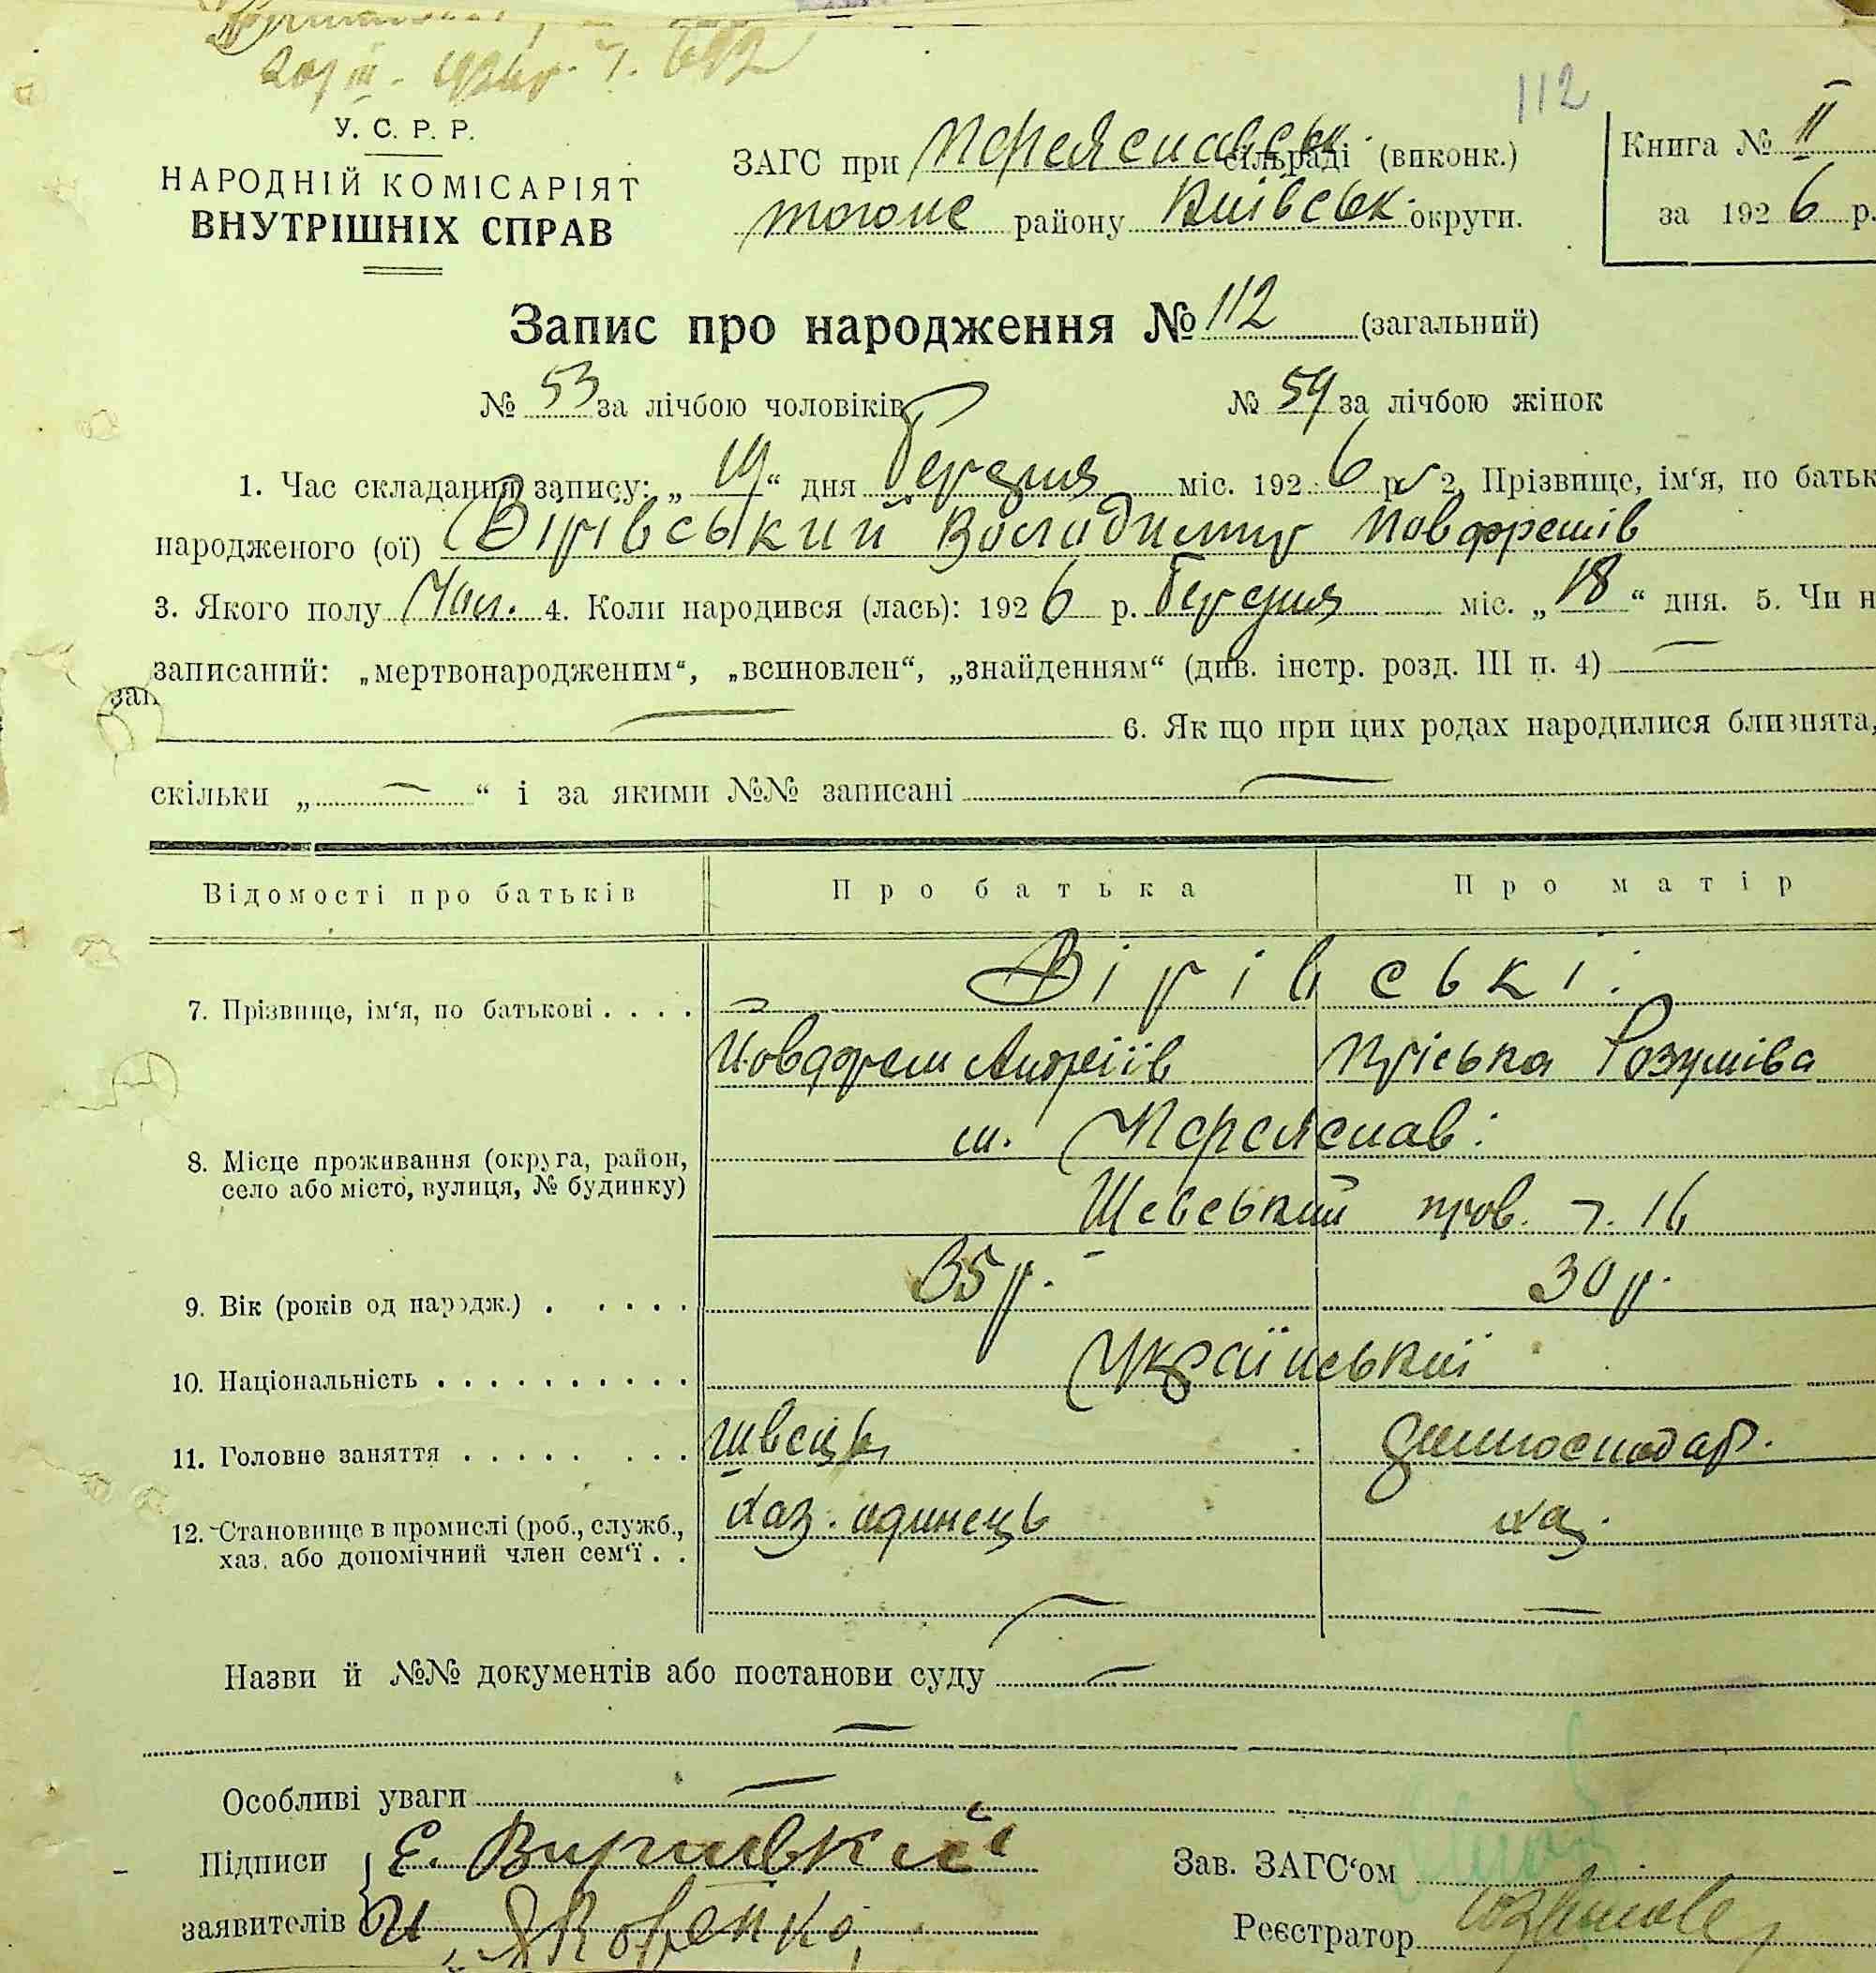 112
У. С. Р. Р.
НАРОДНІЙ КОМІСАРІЯТ
ВНУТРІШНІХ СПРАВ
ЗАГС при Переяславськ. сільраді (виконк.)
тогоже району Київськ. округи.
Книга № II
за 1926 р.
Запис про народження № 112 (загальний)
№ 53 за лічбою чоловіків № 59 за лічбою жінок
1. Час складання запису: „19“ дня Березня міс. 1926 р. 2. Прізвище, ім‘я, по батьк
народженого (ої) Вірівський Володимир Йовдфремів
3. Якого полу Чол. 4. Коли народився (лась): 1926 р. Березня міс. „18“ дня. 5. Чи н
записаний: „мертвонародженим“, „всиновлен“, „знайденням“ (див. інстр. розд. III п. 4)
зап
6. Як що при цих родах народилися близнята,
скільки „ “ і за якими №№ записані
Відомості про батьків Про батька Про матір
Вірівські:
7. Прізвище, ім‘я, по батькові
Йовдфрем Андріїв Пріська Розумівa
м. Переяслав:
8. Місце проживання (округа, район,
село або місто, вулиця, № будинку)
Шевський пров. 16
9. Вік (років од народж.) 35 р. 30 р.
10. Національність Українській
11. Головне заняття швець домогосподар.
12. Становище в промислі (роб., служб., хаз. одинець хаз.
хаз. або допомічний член сем‘ї
Назви й №№ документів або постанови суду
Особливі уваги
Підписи Є. Виривский
заявителів И. Яковенко
Зав. ЗАГС‘ом
Реєстратор